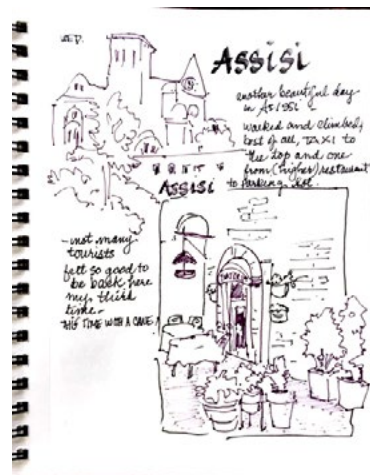 WED.
Assisi
another beautiful day
in Assisi -
walked and climbed,
best of all, TAXI to
the top and one
from (higher) restaurant
to parking lot.
Assisi
- not many
tourists
felt so good to
be back here
my third
time -
THIS TIME WITH A CANE!